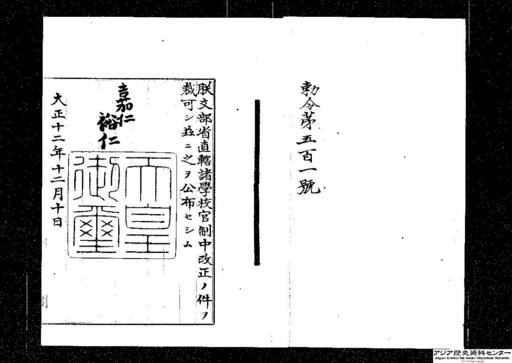 勅令第五百一號
朕文部省直轄諸學校官制中改正ノ件ヲ
裁可シ茲ニ之ヲ公布セシム
嘉仁
裕仁
天皇御璽
大正十二年十二月十日
アジア歴史資料センター
Japan Center for Asian Historical Records